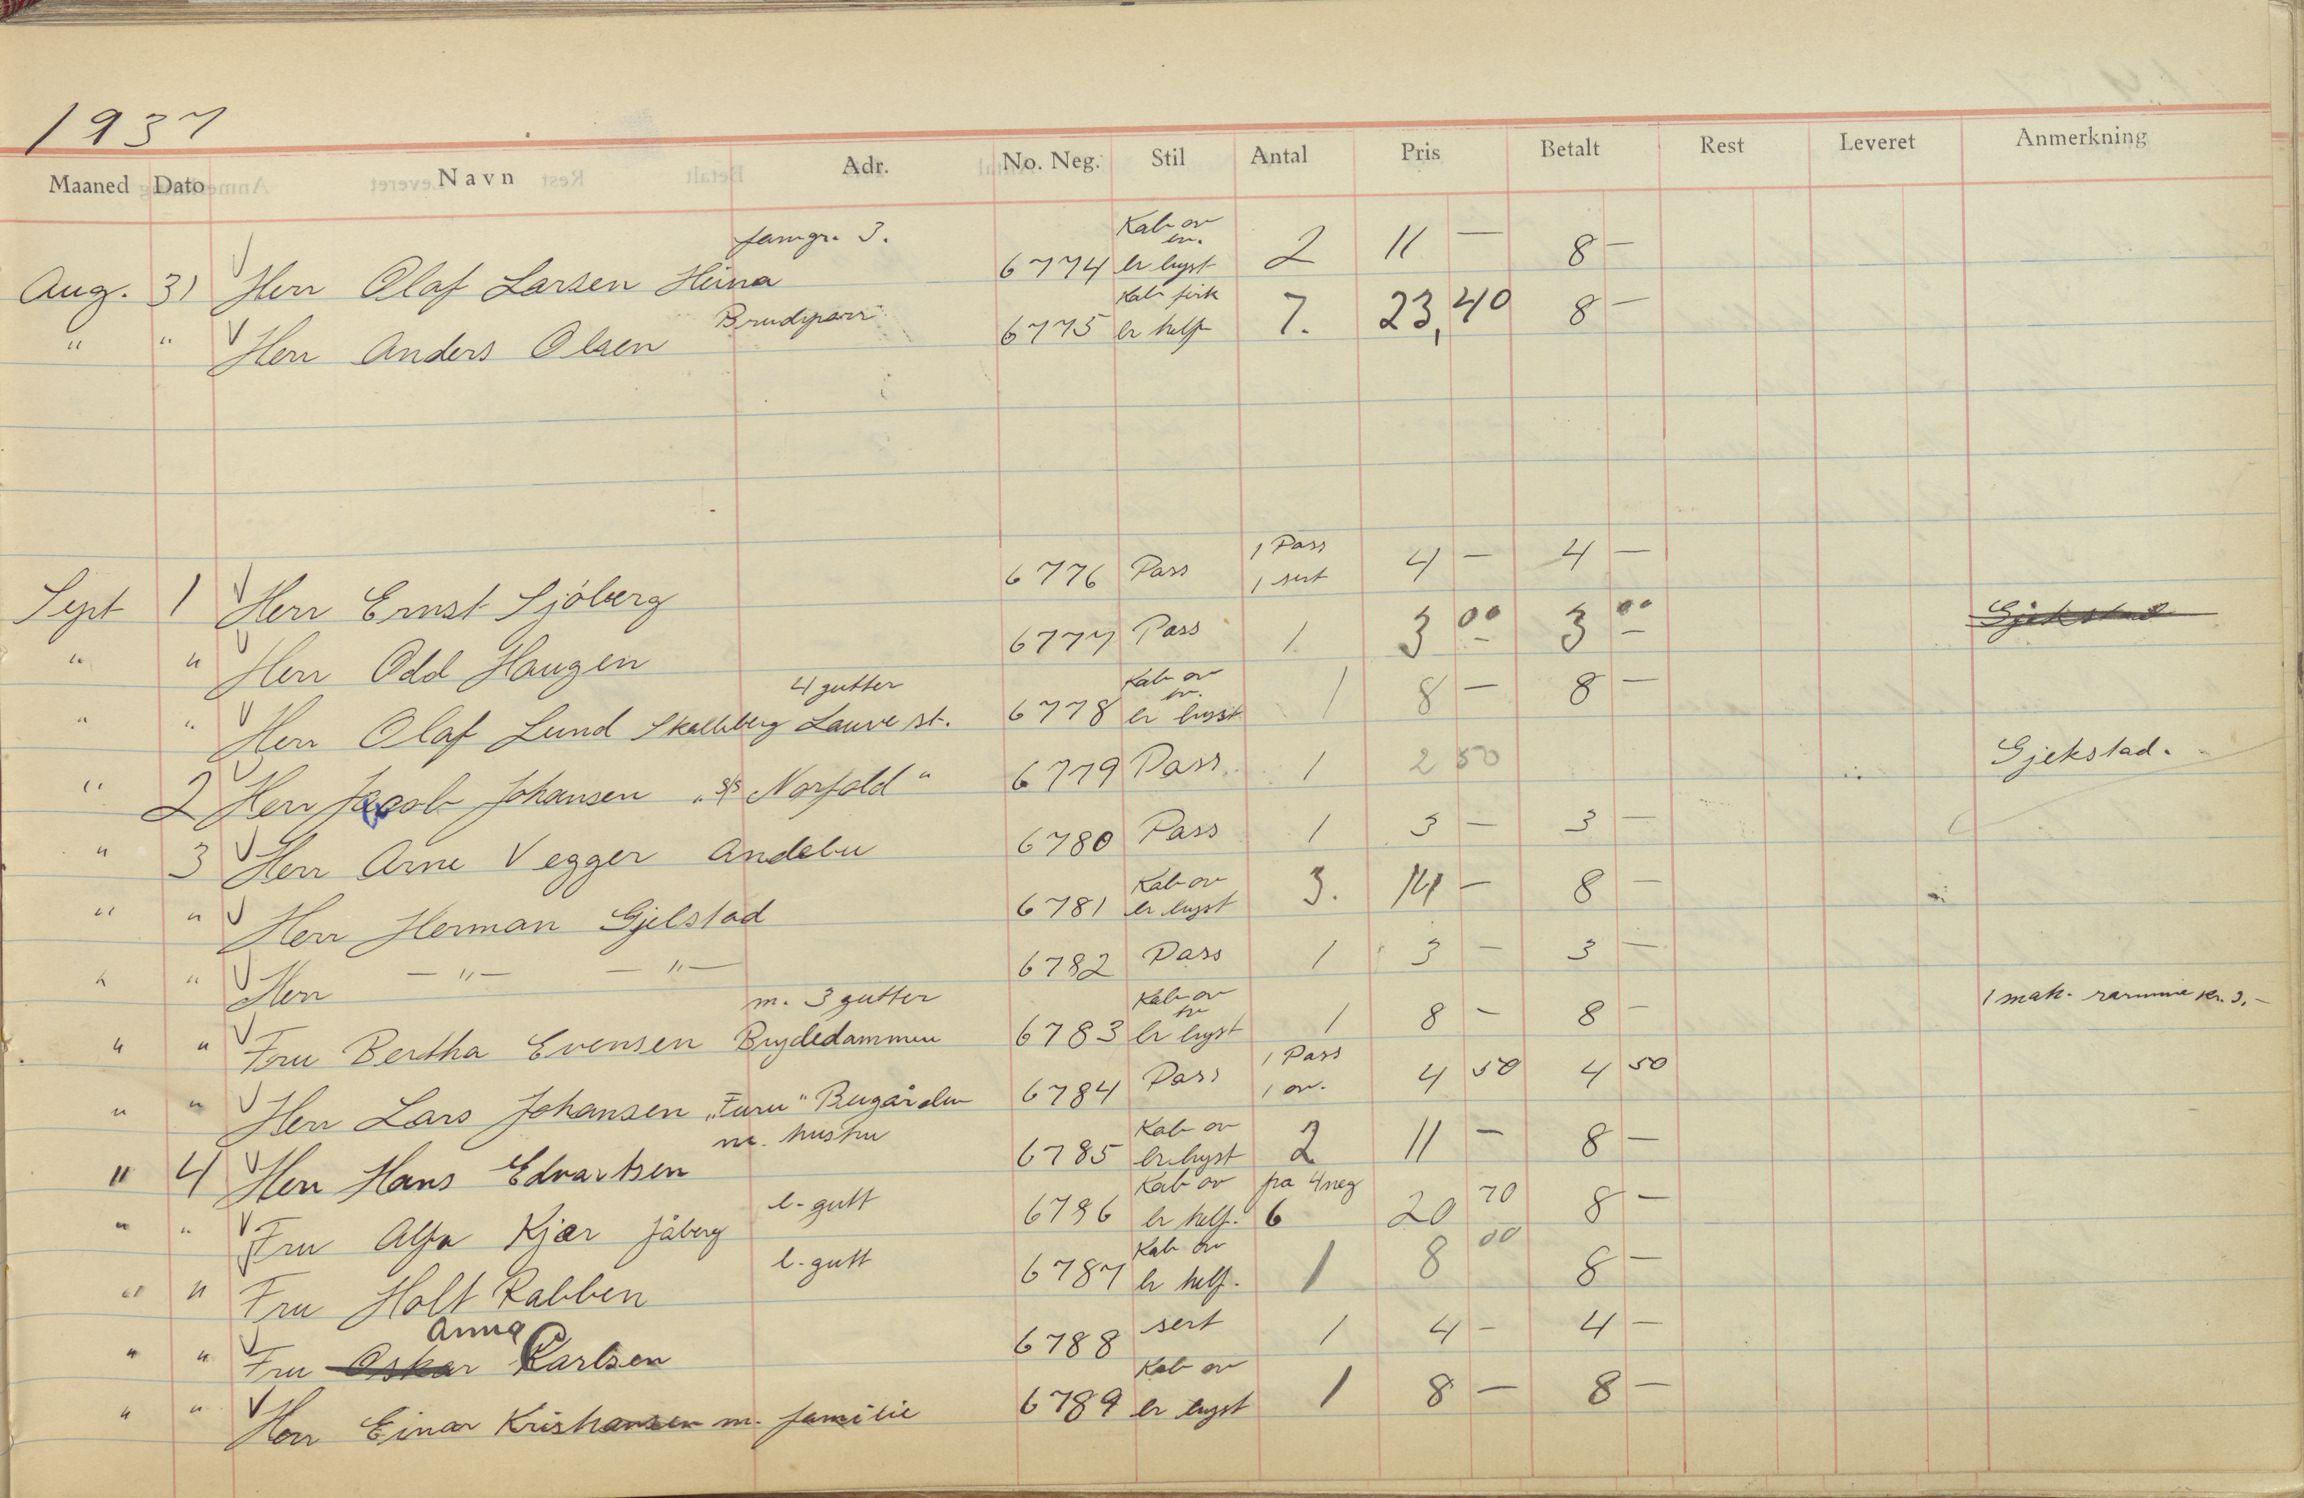 1937
Maaned Dato Navn Adr. No. Neg. Stil Antal Pris Betalt Rest Leveret Anmerkning
famgr. 3. Kab ov
Aug. 31 V Herr Olaf Larsen Heima 6774 er byst 2 11 — 8 —
Brudparr Kab
" " V Herr Anders Olsen 6775 er helf 7. 23,40 8 —
1 Pass
Sept 1 V Herr Ernst Sjöberg 6776 Pass 1 sert 4 — 4 —
" " V Herr Odd Haugen 6777 Pass 1 3 00 — 3 00 — Gjekstad
4 gutter Kab ov
" " V Herr Olaf Lund Skalleberg Lauve st. 6778 er byst 1 8 — 8 —
" 2 V Herr Jacob Johansen „s/s Norfold" 6779 Pass 1 2 50 Gjekstad.
" 3 V Herr Arne Vegger Andebu 6780 Pass 1 3 — 3 —
Kab ov
" " V Herr Herman Gjelstad 6781 er byst 3. 14 — 8 —
" " V Herr — " — — " — 6782 Pass 1 3 — 3 —
m. 3 gutter Kab ov
" " V Fru Bertha Evensen Brydedammen 6783 er byst 1 8 — 8 — 1 mah. ramme kr. 3.—
1 Pass
" " V Herr Lars Johansen „Furu" Bugården 6784 Pass 1 ov. 4 50 4 50
m. hustru Kab ov
" 4 V Herr Hans Edvartsen 6785 er byst 2 11 — 8 —
l. gutt Kab ov fra 4 neg
" " V Fru Alfa Kjær Jåberg 6786 er helf. 6 20 70 8 —
l. gutt Kab ov
" " V Fru Holt Rabben 6787 er helf. 1 8 00 8 —
Anna
" " V Fru Oskar Karlsen 6788 sert 1 4 — 4 —
Kab ov
" " V Herr Einar Kristiansen m. familie 6789 er byst 1 8 — 8 —